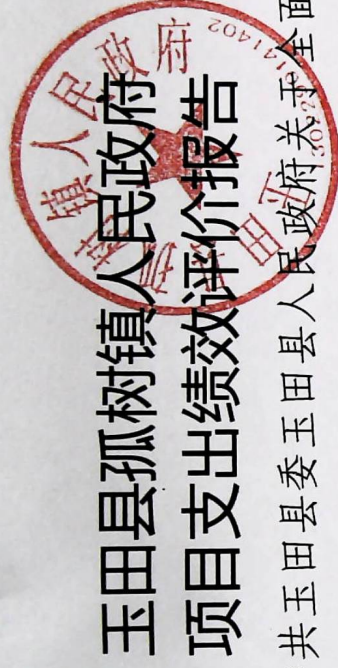 玉田县孤树镇人民政府
项目支出绩效评价报告
共玉田县委玉田县人民政府关于全面